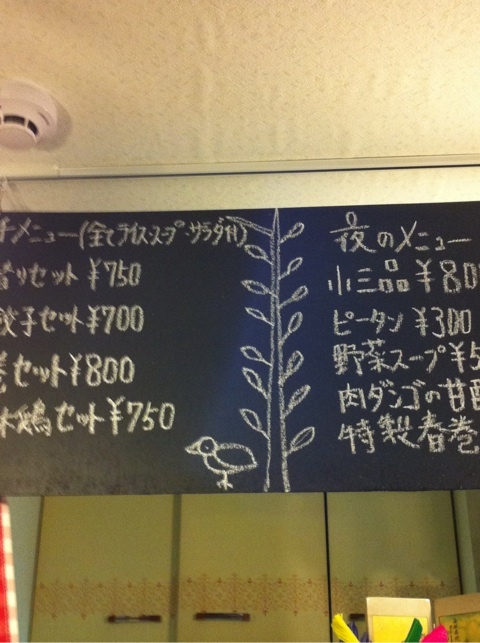 チメニュー(全てライス.スープ サラダ付)
セット¥750
餃子セット¥700
セット¥800
鶏セット¥750
夜のメニュー
小三品¥80
ピータン ¥300
野菜スープ¥5
肉ダンゴの甘酢
特製春巻